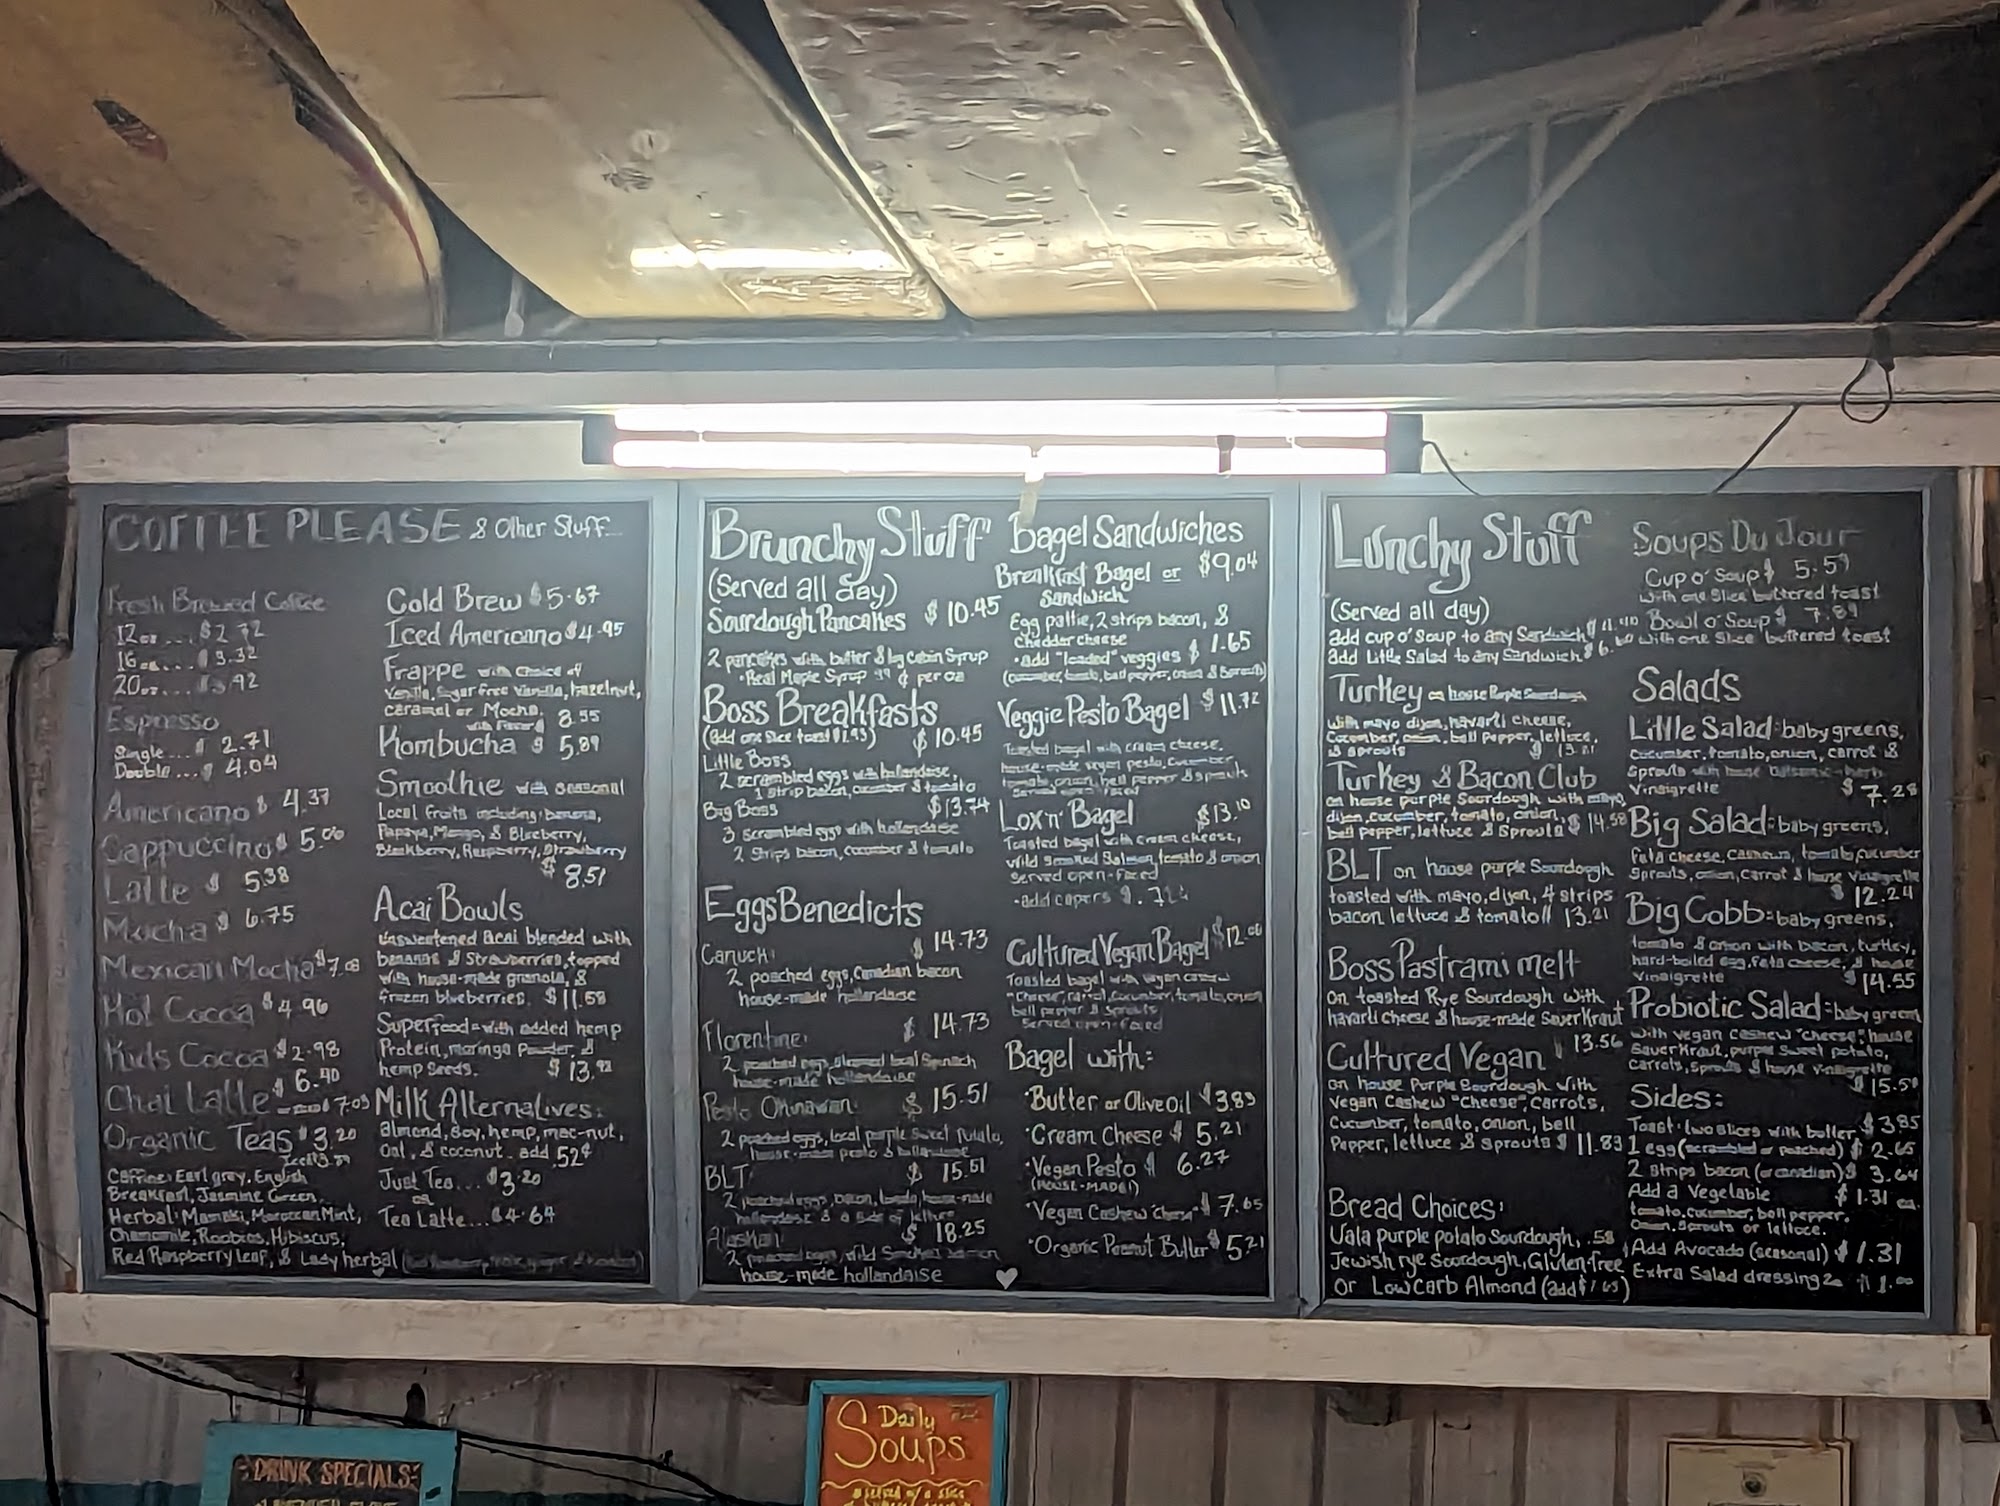 COFFEE PLEASE & Other Stuff...
Fresh Brewed Coffee
12oz....$2.72
16oz....$3.32
20oz....$3.92
Espresso
Single....$ 2.71
Double...$ 4.04
Americano $ 4.37
Cappuccino $ 5.06
Latte $ 5.38
Mocha $ 6.75
Mexican Mocha $7.08
Hot Cocoa $4.96
Kids Cocoa $2.98
Chai Latte $ 6.40
7.09
Organic Teas $3.20
Caffine: Earl grey, English
Breakfast, Jasmine Green,
Herbal: Mamaki, Moroccan Mint,
Chamomile, Rooibos, Hibiscus,
Red Raspberry Leaf, & Lady herbal
Cold Brew $5.67
Iced Americano $4.95
Frappe with choice of
Vanilla, Sugar free Vanilla, hazelnut,
caramel or Mocha.
with Flavor $ 8.55
Kombucha $ 5.89
Smoothie with seasonal
Local fruits including: banana,
Papaya, Mango, & Blueberry,
Blackberry, Raspberry, Strawberry
$ 8.51
Acai Bowls
Unsweetened Acai blended with
bananas & Strawberries, topped
with house-made granola, &
frozen blueberries. $11.58
Superfood=with added hemp
Protein, moringa Powder, &
hemp Seeds. $ 13.92
Milk Alternatives:
almond, Soy, hemp, mac-nut,
Oat, & coconut. add .52¢
Just Tea... $3.20
or
Tea Latte... $4.64
Brunchy Stuff
(Served all day)
Sourdough Pancakes $ 10.45
2 pancakes with butter & log Cabin Syrup
•Real Maple Syrup 99 ¢ per oz
Boss Breakfasts
(add one slice toast $1.93) $ 10.45
Little Boss
2 scrambled eggs with hollandaise,
1 strip bacon, cucumber & tomato
Big Boss $13.74
3 scrambled eggs with hollandaise
2 Strips bacon, cucumber & tomato
Eggs Benedicts
Canuck: $ 14.73
2 poached eggs, Canadian bacon
house-made hollandaise
Florentine: $ 14.73
2 poached eggs, steamed local Spinach
house-made hollandaise
Pesto Okinawan: $ 15.51
2 poached eggs, local purple sweet Potato,
house-made pesto & hollandaise
BLT: $ 15.51
2 poached eggs, bacon, tomato, house-made
hollandaise & a side of lettuce
Alaskan: $ 18.25
2 poached eggs, wild Smoked Salmon
house-made hollandaise
Bagel Sandwiches
Breakfast Bagel or $9.04
Sandwich
Egg pattie, 2 strips bacon, &
Cheddar cheese
•add "loaded" veggies $ 1.65
(cucumber, tomato, bell pepper, onion & Sprouts)
Veggie Pesto Bagel $11.72
Toasted bagel with cream cheese,
house-made vegan pesto, cucumber
tomato, onion, bell pepper & sprouts
Served open-faced
Lox 'n' Bagel $13.10
Toasted bagel with cream cheese,
Wild Smoked Salmon, tomato & onion
Served open-faced
•add capers $ .72¢
Cultured Vegan Bagel $12.06
Toasted bagel with vegan cashew
"cheese", carrot, cucumber, tomato, onion
bell pepper & Sprouts
Served open-faced
Bagel with:
•Butter or Olive Oil $3.83
•Cream Cheese $ 5.21
•Vegan Pesto $ 6.27
(HOUSE-MADE!)
•Vegan Cashew "cheese" $ 7.65
•Organic Peanut Butter $ 5.21
Lunchy Stuff
(Served all day)
add cup o' Soup to any Sandwich
add Little Salad to any Sandwich
Turkey on house Purple Sourdough
with mayo dijon, havarti cheese,
Cucumber, onion, bell pepper, lettuce,
& sprouts
Turkey & Bacon Club
on house purple Sourdough with mayo,
dijon, cucumber, tomato, onion,
bell pepper, lettuce & Sprouts $ 14.58
BLT on house purple Sourdough
toasted with mayo, dijon, 4 strips
bacon lettuce & tomato $ 13.21
Boss Pastrami melt
on toasted Rye Sourdough with
havarti cheese & house-made SauerKraut
$ 13.56
Cultured Vegan
on house Purple Sourdough with
vegan Cashew "Cheese", Carrots,
Cucumber, tomato, onion, bell
Pepper, lettuce & Sprouts $ 11.83
Bread Choices:
Uala purple potato Sourdough, .58
Jewish rye Sourdough, Gluten-free
Or Low Carb Almond (add $1.65)
Soups Du Jour
Cup o' Soup $ 5.59
with one slice buttered toast
Bowl o' Soup $ 7.89
with one slice buttered toast
Salads
Little Salad: baby greens,
cucumber, tomato, onion, carrot &
Sprouts with house balsamic-herb
Vinaigrette $ 7.28
Big Salad: baby greens,
feta cheese, cashews, tomato, cucumber
Sprouts, onion, carrot & house vinaigrette
$ 12.24
Big Cobb: baby greens,
tomato & onion with bacon, turkey,
hard-boiled egg, feta cheese, & house
vinaigrette $14.55
Probiotic Salad: baby green
with vegan cashew "cheese", house
SauerKraut, purple sweet potato,
carrots, Sprouts & house vinaigrette
Sides:
Toast: two slices with butter $3.85
1 egg (scrambled or poached) $ 2.65
2 strips bacon (or canadian) $ 3.64
Add a Vegetable $ 1.31 ea.
tomato, cucumber, bell pepper,
Onion, Sprouts or lettuce.
Add Avocado (seasonal) $ 1.31
Extra Salad dressing
DRINK SPECIALS:
Daily
Soups